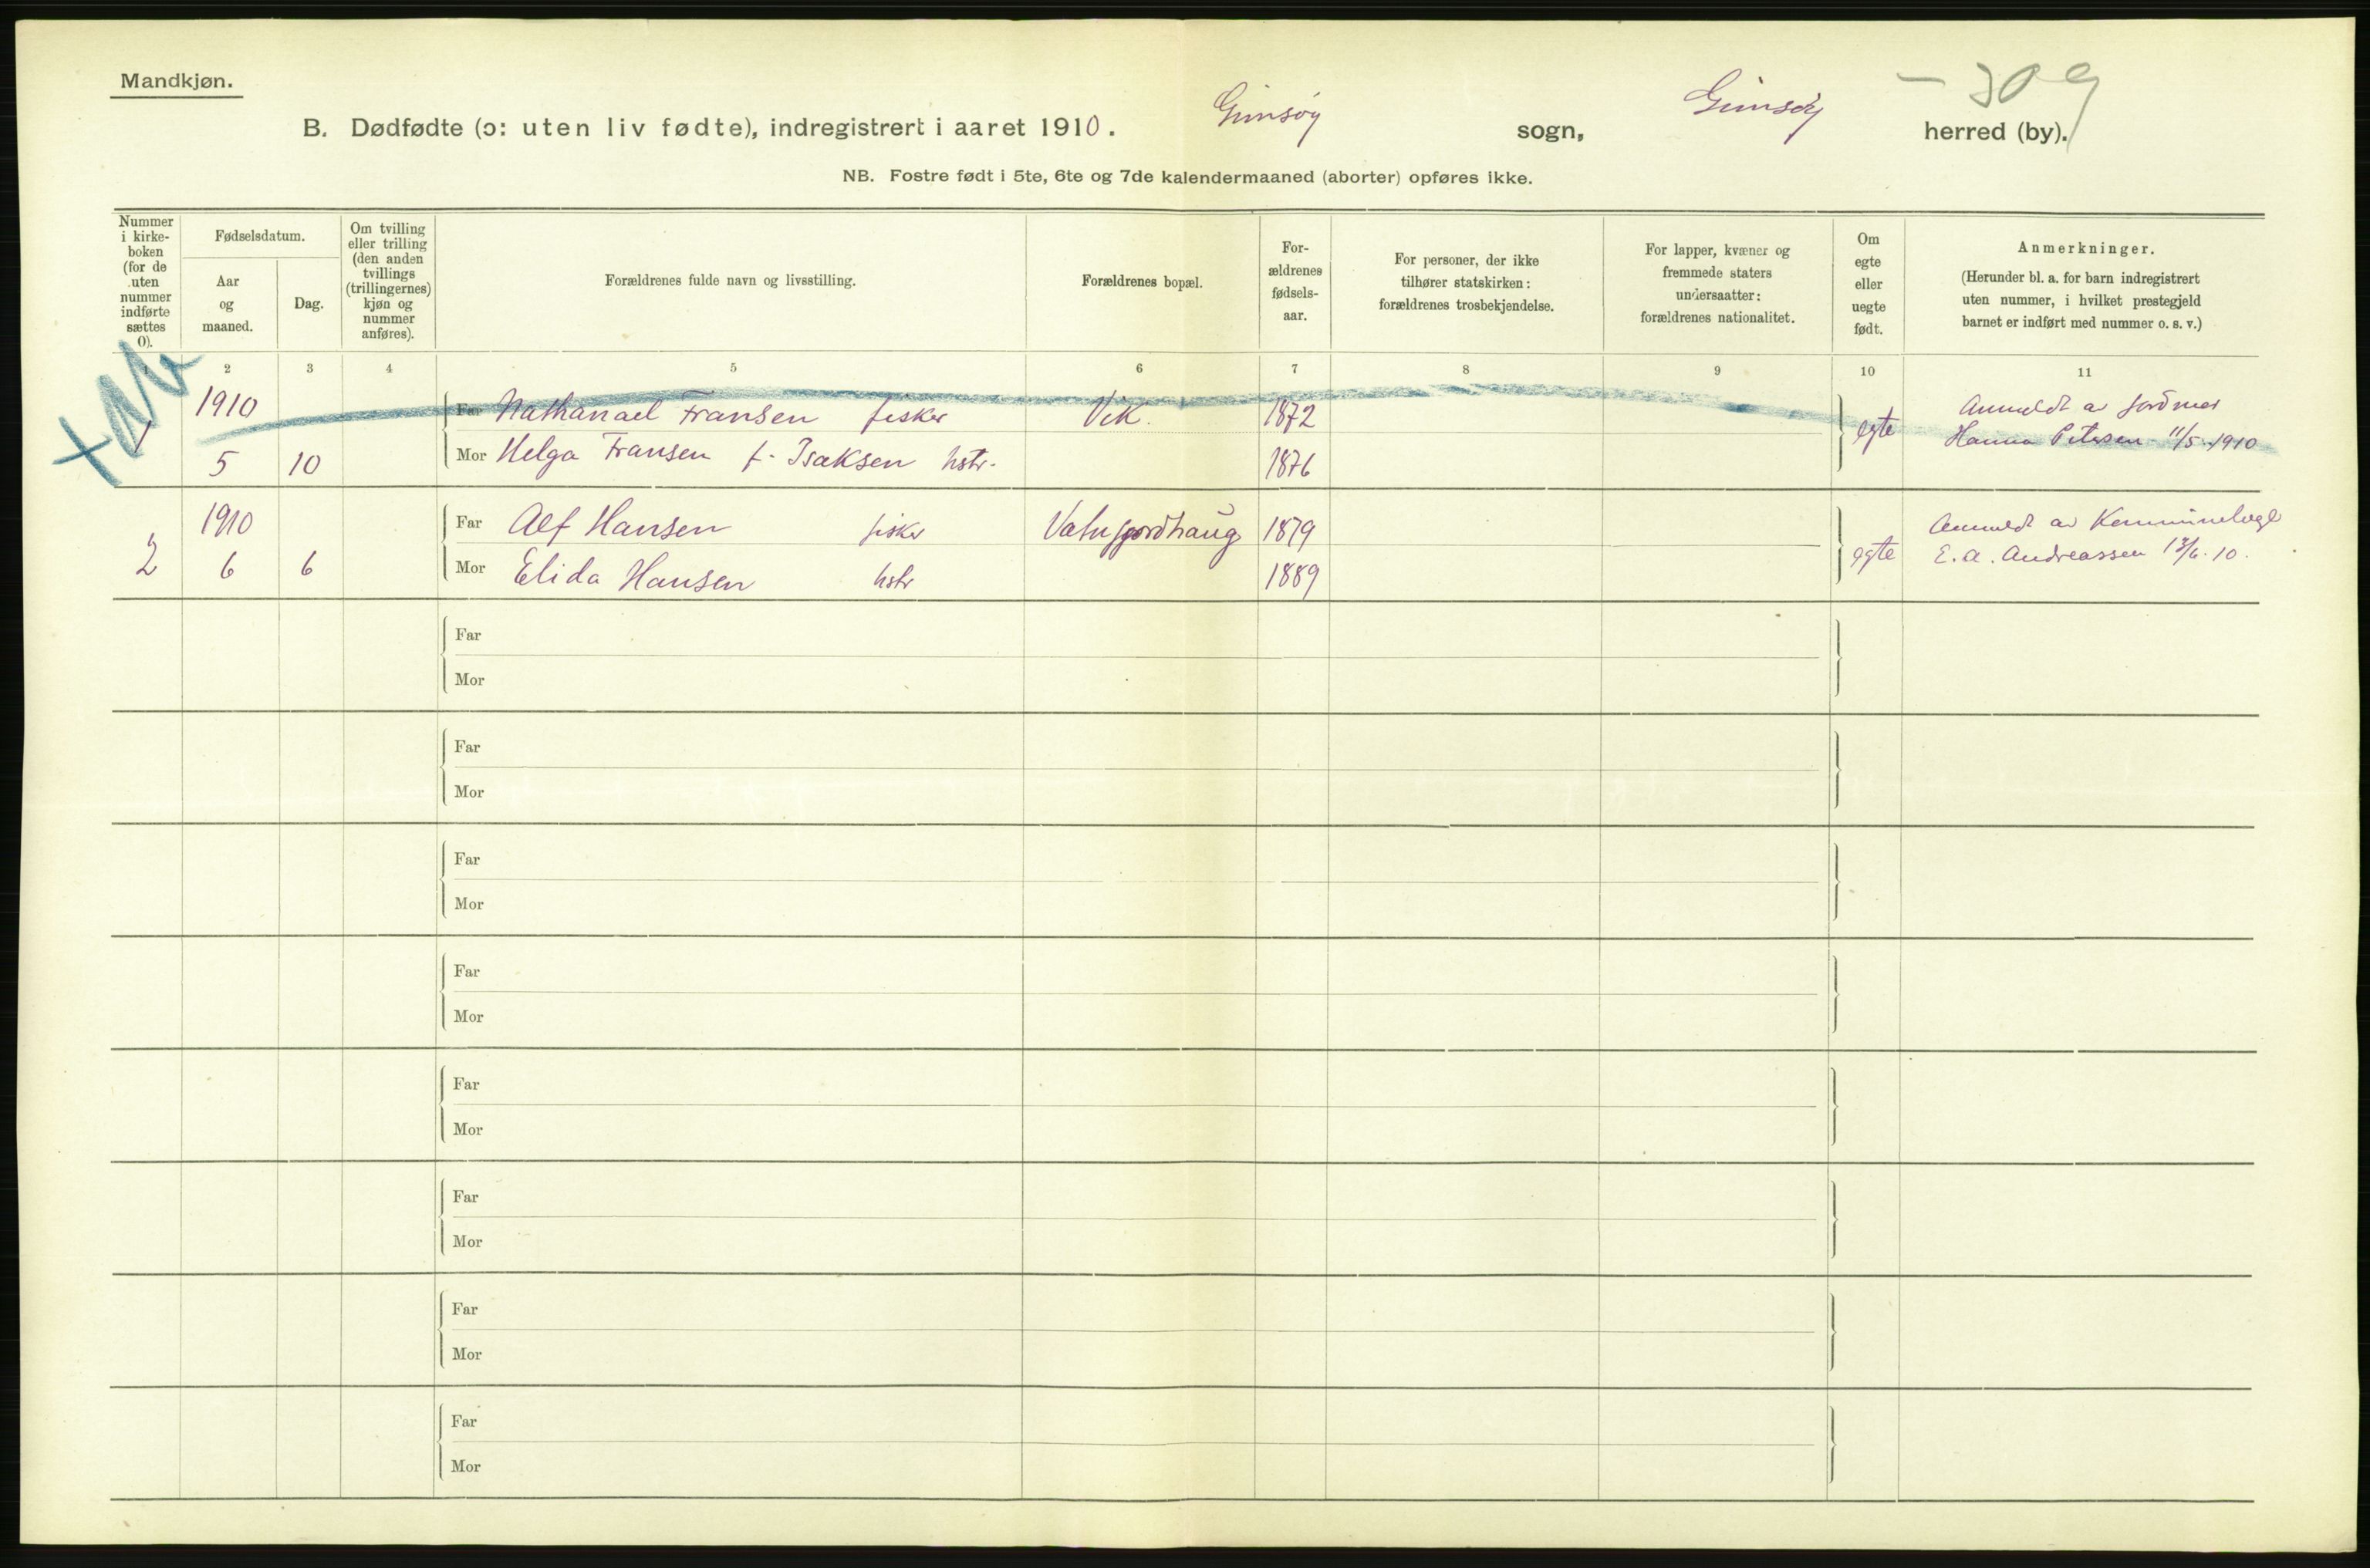 Mandkjøn.
- 309
B. Dødfødte (ɔ: uten liv fødte), indregistrert i aaret 1910. Gimsøy sogn, Gimsøy herred (by).
NB. Fostre født i 5te, 6te og 7de kalendermaaned (aborter) opføres ikke.
Nummer
i kirke-
boken
(for de
uten
nummer
indførte
sættes
0).
Fødselsdatum.
Aar
og
maaned.
Dag.
Om tvilling
eller trilling
(den anden
tvillings
(trillingernes)
kjøn og
nummer
anføres).
Forældrenes fulde navn og livsstilling.
Forældrenes bopæl.
For-
ældrenes
fødsels-
aar.
For personer, der ikke
tilhører statskirken:
forældrenes trosbekjendelse.
For lapper, kvæner og
fremmede staters
undersaatter:
forældrenes nationalitet.
Om
egte
eller
uegte
født.
Anmerkninger.
(Herunder bl. a. for barn indregistrert
uten nummer, i hvilket prestegjeld
barnet er indført med nummer o. s. v.)
1 2 3 4 5 6 7 8 9 10 11
1 1910 Far Nathanael Fransen fisker Vik. 1872 egte Anmeldt av jordmor
5 10 Mor Helga Fransen f. Isaksen hstr. 1876 Hanna Petersen 11/5 1910
2 1910 Far Alf Hansen fisker Vatnfjordhaug 1879 egte Anmeldt av Kommunelæge
6 6 Mor Elida Hansen hstr 1889 E. A. Andreassen 13/6. 10.
Far
Mor
Far
Mor
Far
Mor
Far
Mor
Far
Mor
Far
Mor
Far
Mor
Far
Mor